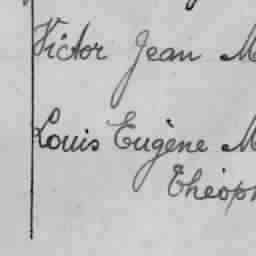 Victor Jean M
Louis Eugène M
Théop